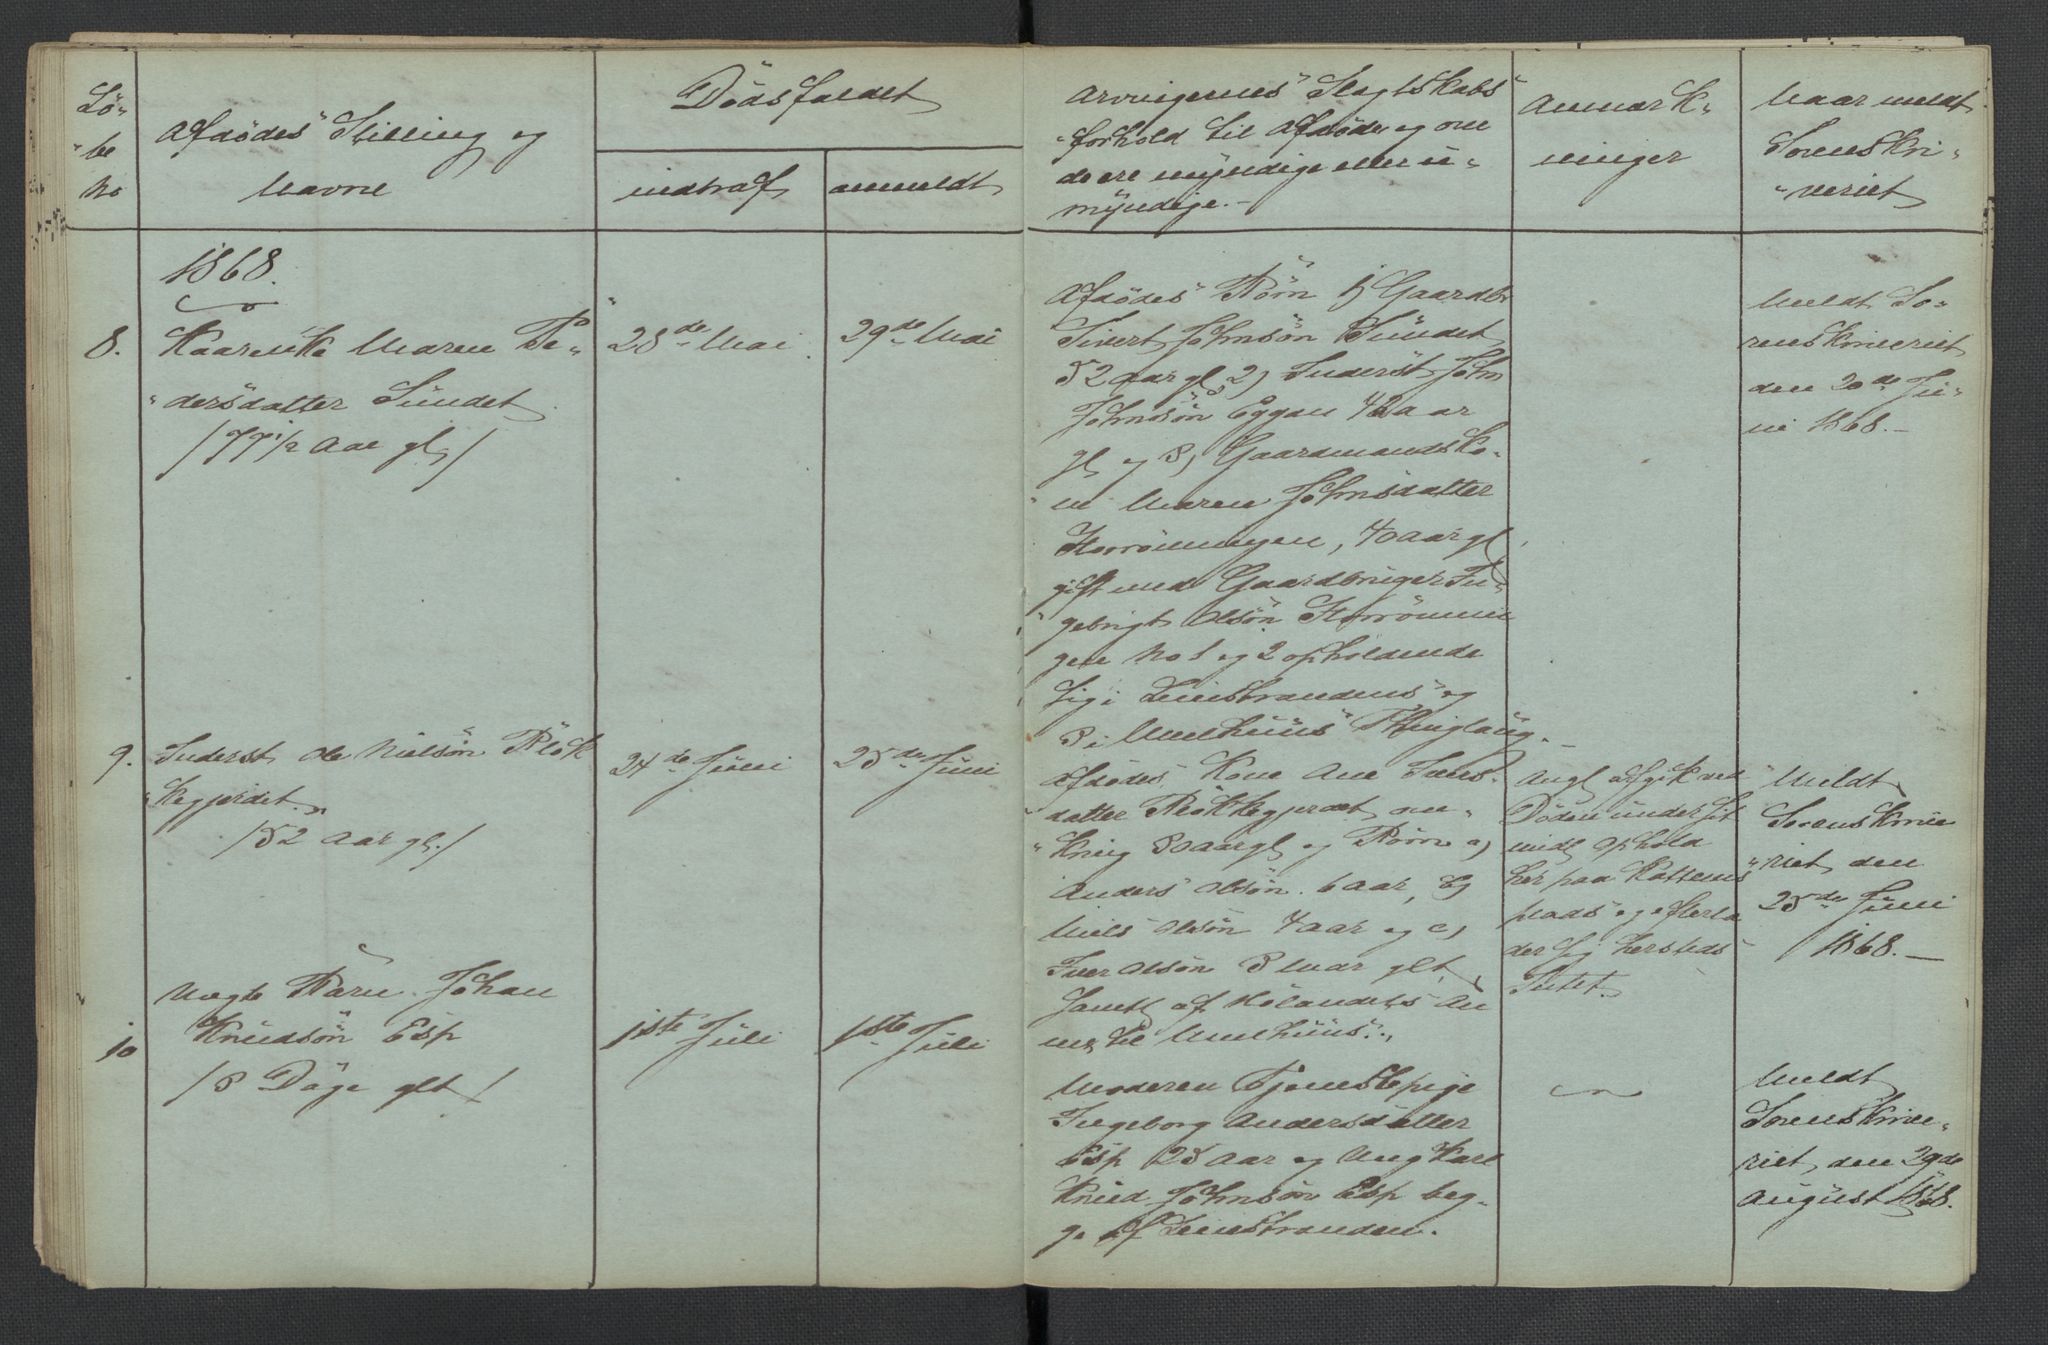 Lö-
be
No
Afdödes Stilling og
Navne
Dödsfaldet
indtraf
anmeldt
Arvingernes Slægtskabs
forhold til Afdöde og om
de ere myndige eller u-
myndige.-
Anmærk-
ninger
Naar meldt
Sorenskri-
veriet
1868.
8.
Kaarenke Maren Pe-
dersdatter Sundet
/77 1/2 Aar gl/
28de Mai
29de Mai
Afdödes Börn 1) Gaardbr
Sivert Johnsön Sundet
52 aar gl, 2) Inderst John
Johnsön Eggan 42 aar
gl og 3) Gaardmandsko-
ne Maren Johnsdatter
Storrönningen, 40 aar gl
gift med Gaardbruger In-
gebrigt Olsön Storrönnin
gen No 1 og 2 opholdende
sig i Leinstrandens og
3 i Melhuus Thinglaug.-
Meldt So-
renskriveriet
den 20de Ju-
ni 1868.-
9.
Inderst Ole Nielsön Blök
kegjerdet
/52 Aar gl./
24de Juni
25de Juni
Afdödes Kone Ane Ivers-
datter Blökkegjerdet om-
kring 30 aar gl og Börn a)
Anders Olsön 6 aar, b)
Niels Olsön 4 aar og c)
Iver Olsön 3 Maar glt,
samtl af Hölandets An
nex til Melhuus.
Angl afgik ved
Döden under sit
midl Ophold
her paa Kattems
plads og efterla
der sig hersteds
Intet.
Meldt
Sorenskrive
riet den
25de Juni
1868.-
10
Uægte Barn Johan
Knudsön Esp
/8 Döge glt/
1ste Juli
1ste Juli
Moderen Tjenestepige
Ingeborg Andersdatter
Esp 25 Aar og Ung Karl
Knud Johnsön Esp beg-
ge af Leinstranden.
Meldt
Sorenskrive-
riet den 29de
August 1868.